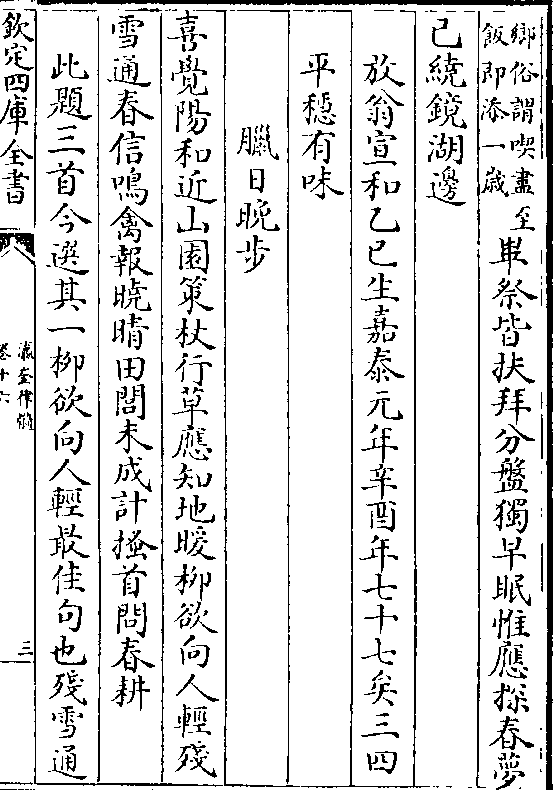 鄉俗謂喫盡至
飯即添一歲
畢祭皆扶拜分盤獨早眠惟應探春夢
已繞鏡湖邊
放翁宣和乙巳生嘉泰元年辛酉年七十七矣三四
平穩有味
臘日晚步
喜覺陽和近山園策杖行草應知地暖柳欲向人輕殘
雪通春信鳴禽報曉晴田閭未成計搔首問春耕
此題三首今選其一柳欲向人輕最佳句也殘雪通
欽定四庫全書
瀛奎律髓
卷十六
三